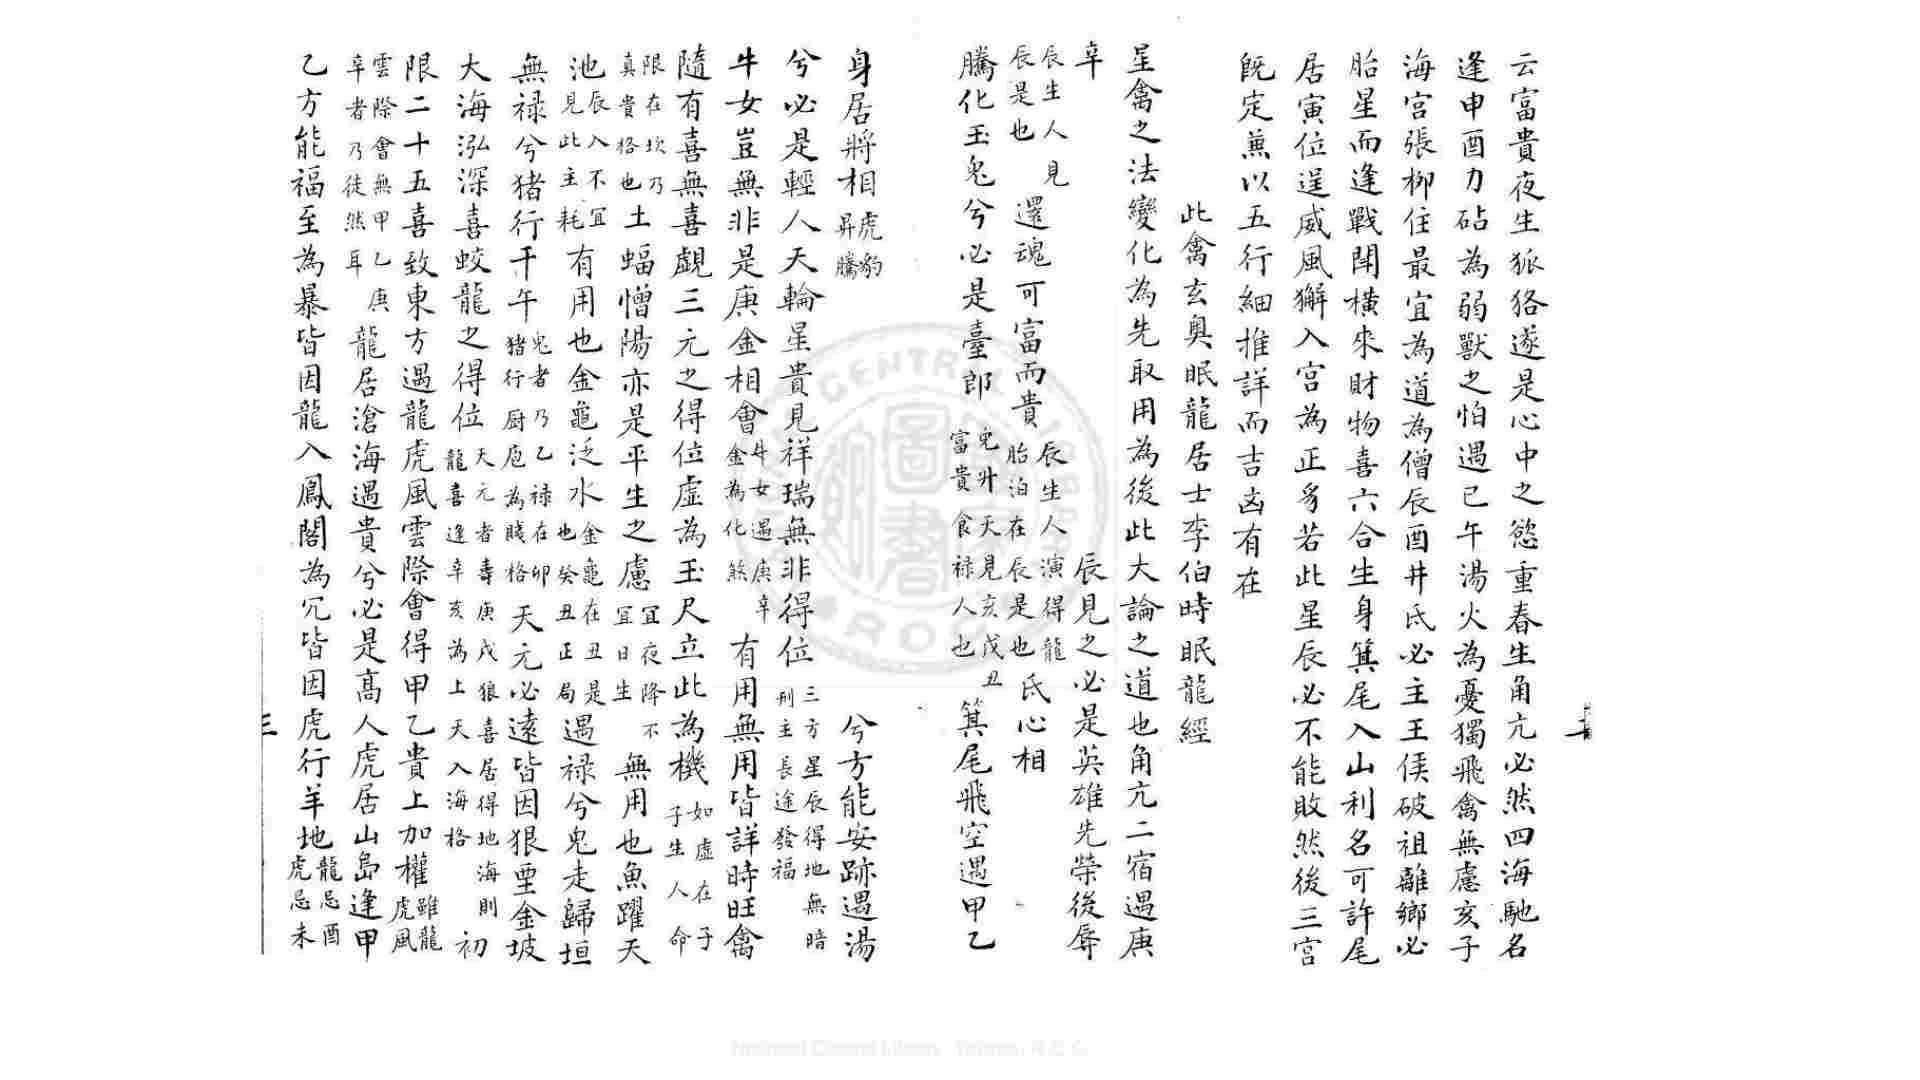 云富貴夜生狐狢遂是心中之慾重春生角亢必然四海馳名
逢申酉力砧為弱獸之怕遇巳午湯火為憂獨飛禽無慮亥子
海宮張柳住最宜為道為僧辰酉井氐必主王侯破祖離鄉必
胎星而逢戰鬪橫來財物喜六合生身箕尾入山利名可許尾
居寅位逞威風獬入宮為正身若此星辰必不能敗然後三宮
既定兼以五行細推詳而吉凶有在
此禽玄奧眠龍居士李伯時眠龍經
星禽之法變化為先取用為後此大論之道也角亢二宿遇庚
辛
辰生人見
辰是也
辰見之必是英雄先榮後辱
還魂可富而貴
辰生人演得龍
胎泊在辰是也
氐心相
騰化玉兔兮必是臺郎
兔升天見亥戌丑
富貴食祿人也
箕尾飛空遇甲乙
身居將相
虎豹
昇騰
兮方能安跡遇湯
兮必是輕人天輪星貴見祥瑞無非得位
三方星辰得地無暗
刑主長途發福
牛女豈無非是庚金相會
牛女遇庚辛
金為化煞
有用無用皆詳時旺禽
隨有喜無喜覷三元之得位虛為玉尺立此為機
如虛在子
子生人命
限在坎乃
真貴格也
土蝠憎陽亦是平生之慮
宜夜降不
宜日生
無用也魚躍天
池
辰入不宜
見此主耗
有用也金龜泛水
金龜在丑是
也癸丑正局
遇祿兮兔走歸垣
無祿兮猪行千午
兔者乃乙祿在卯
猪行厨庖為賤格
天元必遠皆因狠垔金坡
大海泓深喜蛟龍之得位
天元者壽庚戌狼喜居得地海則
龍喜逢辛亥為上天入海格
初
限二十五喜致東方遇龍虎風雲際會得甲乙貴上加權
雖龍
虎風
雲際會無甲乙庚
辛者乃徒然耳
龍居滄海遇貴兮必是高人虎居山島逢甲
乙方能福至為暴皆因龍入鳳閣為冗皆因虎行羊地
龍忌酉
虎忌未
三